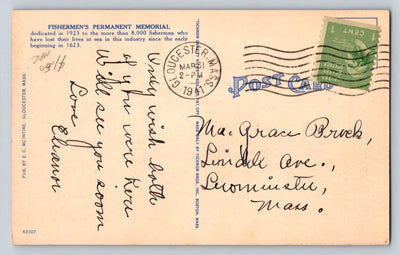 FISHERMEN'S PERMANENT MEMORIAL
dedicated in 1923 to the more than 8,000 fishermen who
have lost their lives at sea in this industry since the early
beginning in 1623.
Only wish both
of you were here
Will see you soon
Love
Eleanor
PUB. BY E. C. MCINTIRE, GLOUCESTER, MASS.
63107
GLOUCESTER, MASS.
2-PM
1941
1 CENT 1
POST CARD
Grace
Ave.,
Leominster,
Mass.